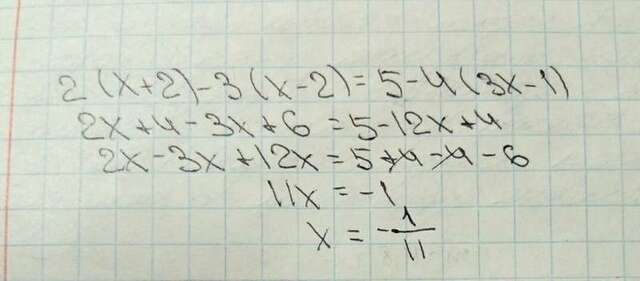 2(x+2)-3(x-2)=5-4(3x-1)
2x+4-3x+6=5-12x+4
2x-3x+12x=5+4-4-6
11x=-1
x=-1/11